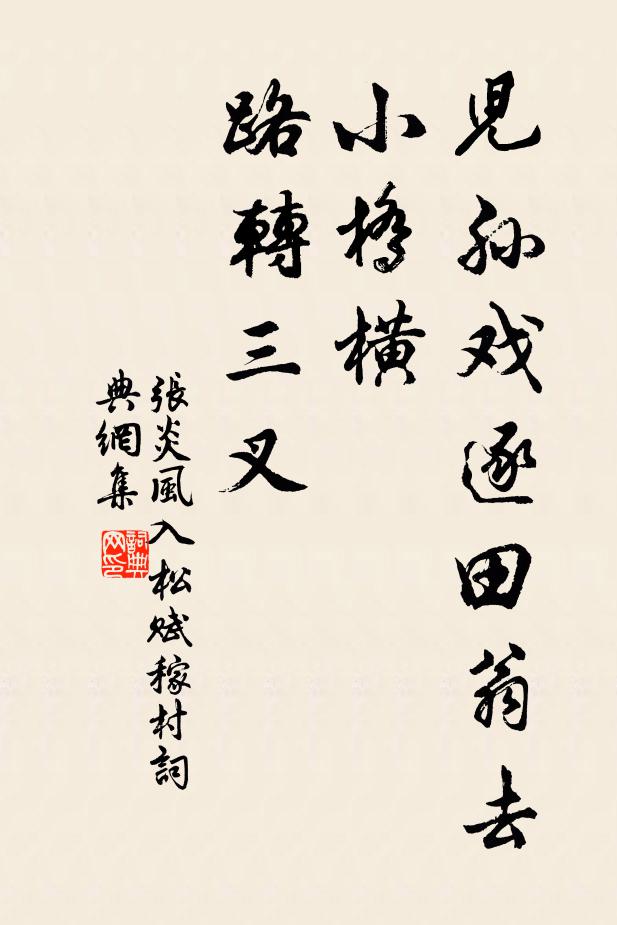 児孙戏逐田翁去
小橋橫
路轉三叉
張炎風入松賦稼村詞
典網集
詞典网印